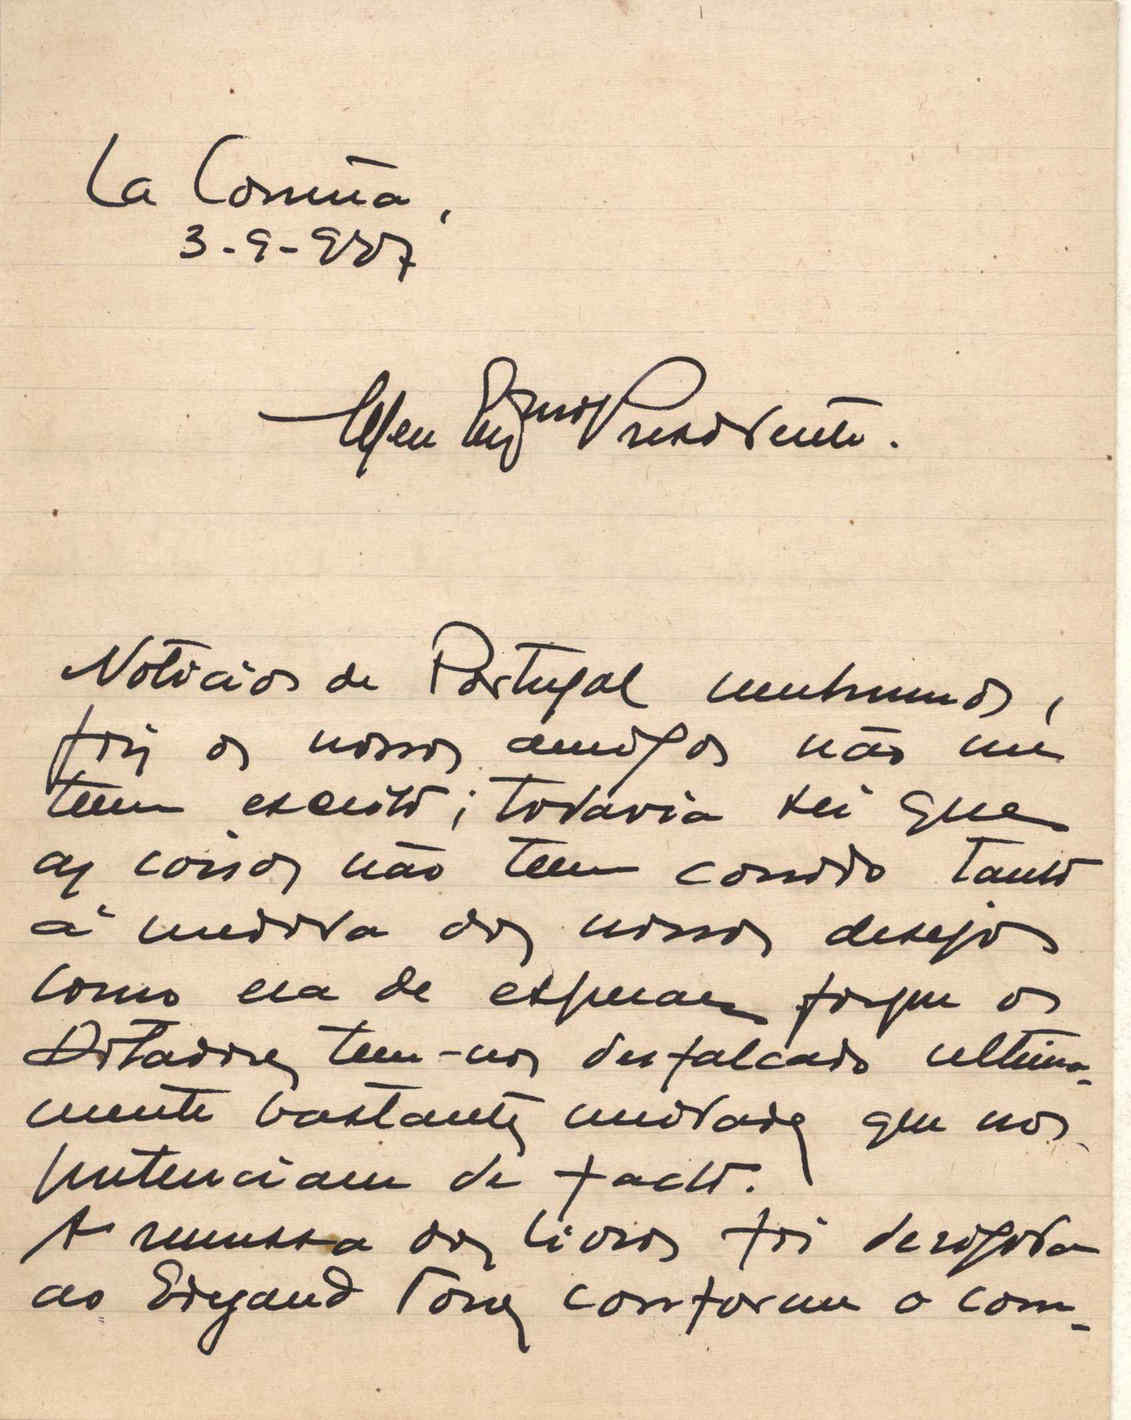 La Coruña,
3-9-927
Meu Exmo Presidente.
Noticias de Portugal nenhumas,
pois os nossos amigos não me
teem escrito; todavia sei que
as coisas não teem corrido tanto
á medida dos nossos desejos
como era de esperar porque os
Ditadores teem-nos desfalcado ultima-
mente bastantes unidades que nos
pertenciam de facto.
A remessa dos livros foi dirigida
ao conforme o com-